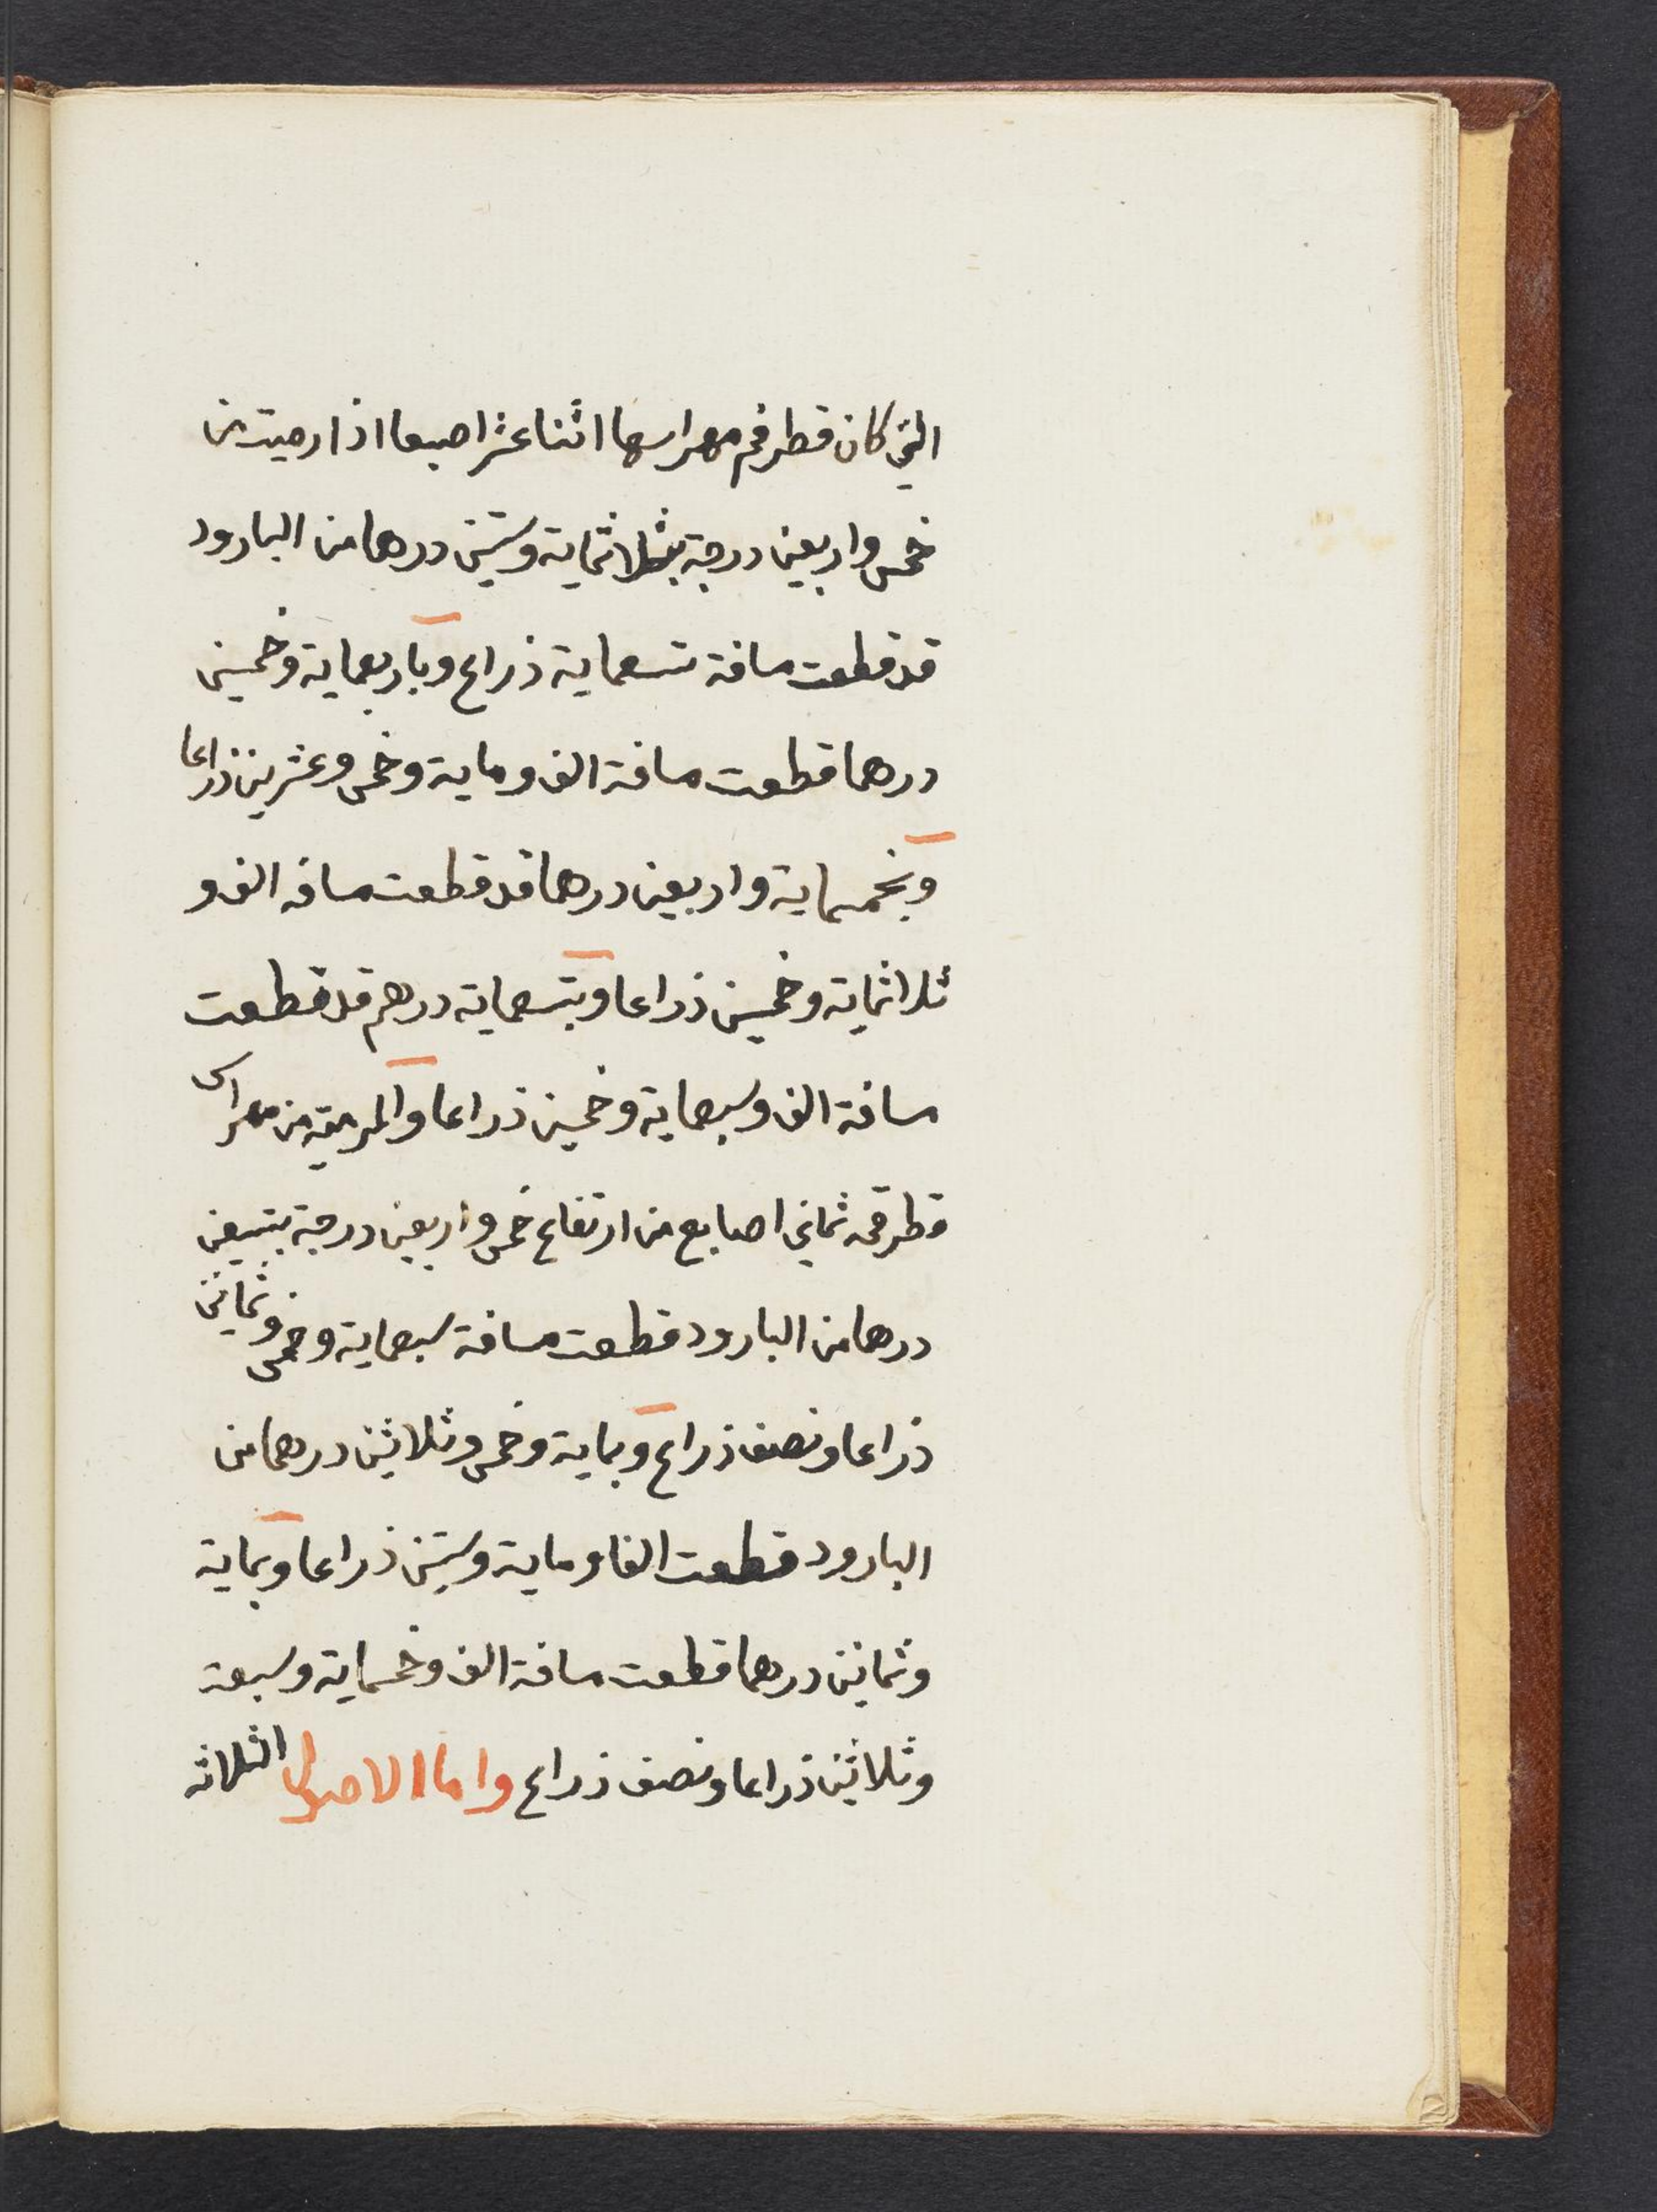 التي كان قطر فم مهراسها اثنا عشر اصبعا اذا رميت من
خمس واربعين درجة بثلاثماية وستين درهما من البارود
قد قطعت مسافة تسعماية ذراع وباربعماية وخمسين
درهما قطعت مسافة الف وماية وخمس وعشرين ذراعا
وبخمسماية واربعين درهما قد قطعت مسافه الف و
ثلاثماية وخمسين ذراعا وبتسعماية درهم قد قطعت
مسافة الف وسبعماية وخمسين ذراعا والمرمية من مهراس
قطر فمه ثماني اصابع من ارتفاع خمس واربعين درجة بتسعين
درهما من البارود قطعت مسافة سبعماية وخمس وثمانين
ذراعا ونصف ذراع وبماية وخمس وثلاثين درهما من
البارود قطعت الفا وماية وستين ذراعا وبماية
وثمانين درهما قطعت مسافة الف وخمسماية وسبعة
وثلاثين ذراعا ونصف ذراع واما الاصول الثلاثه